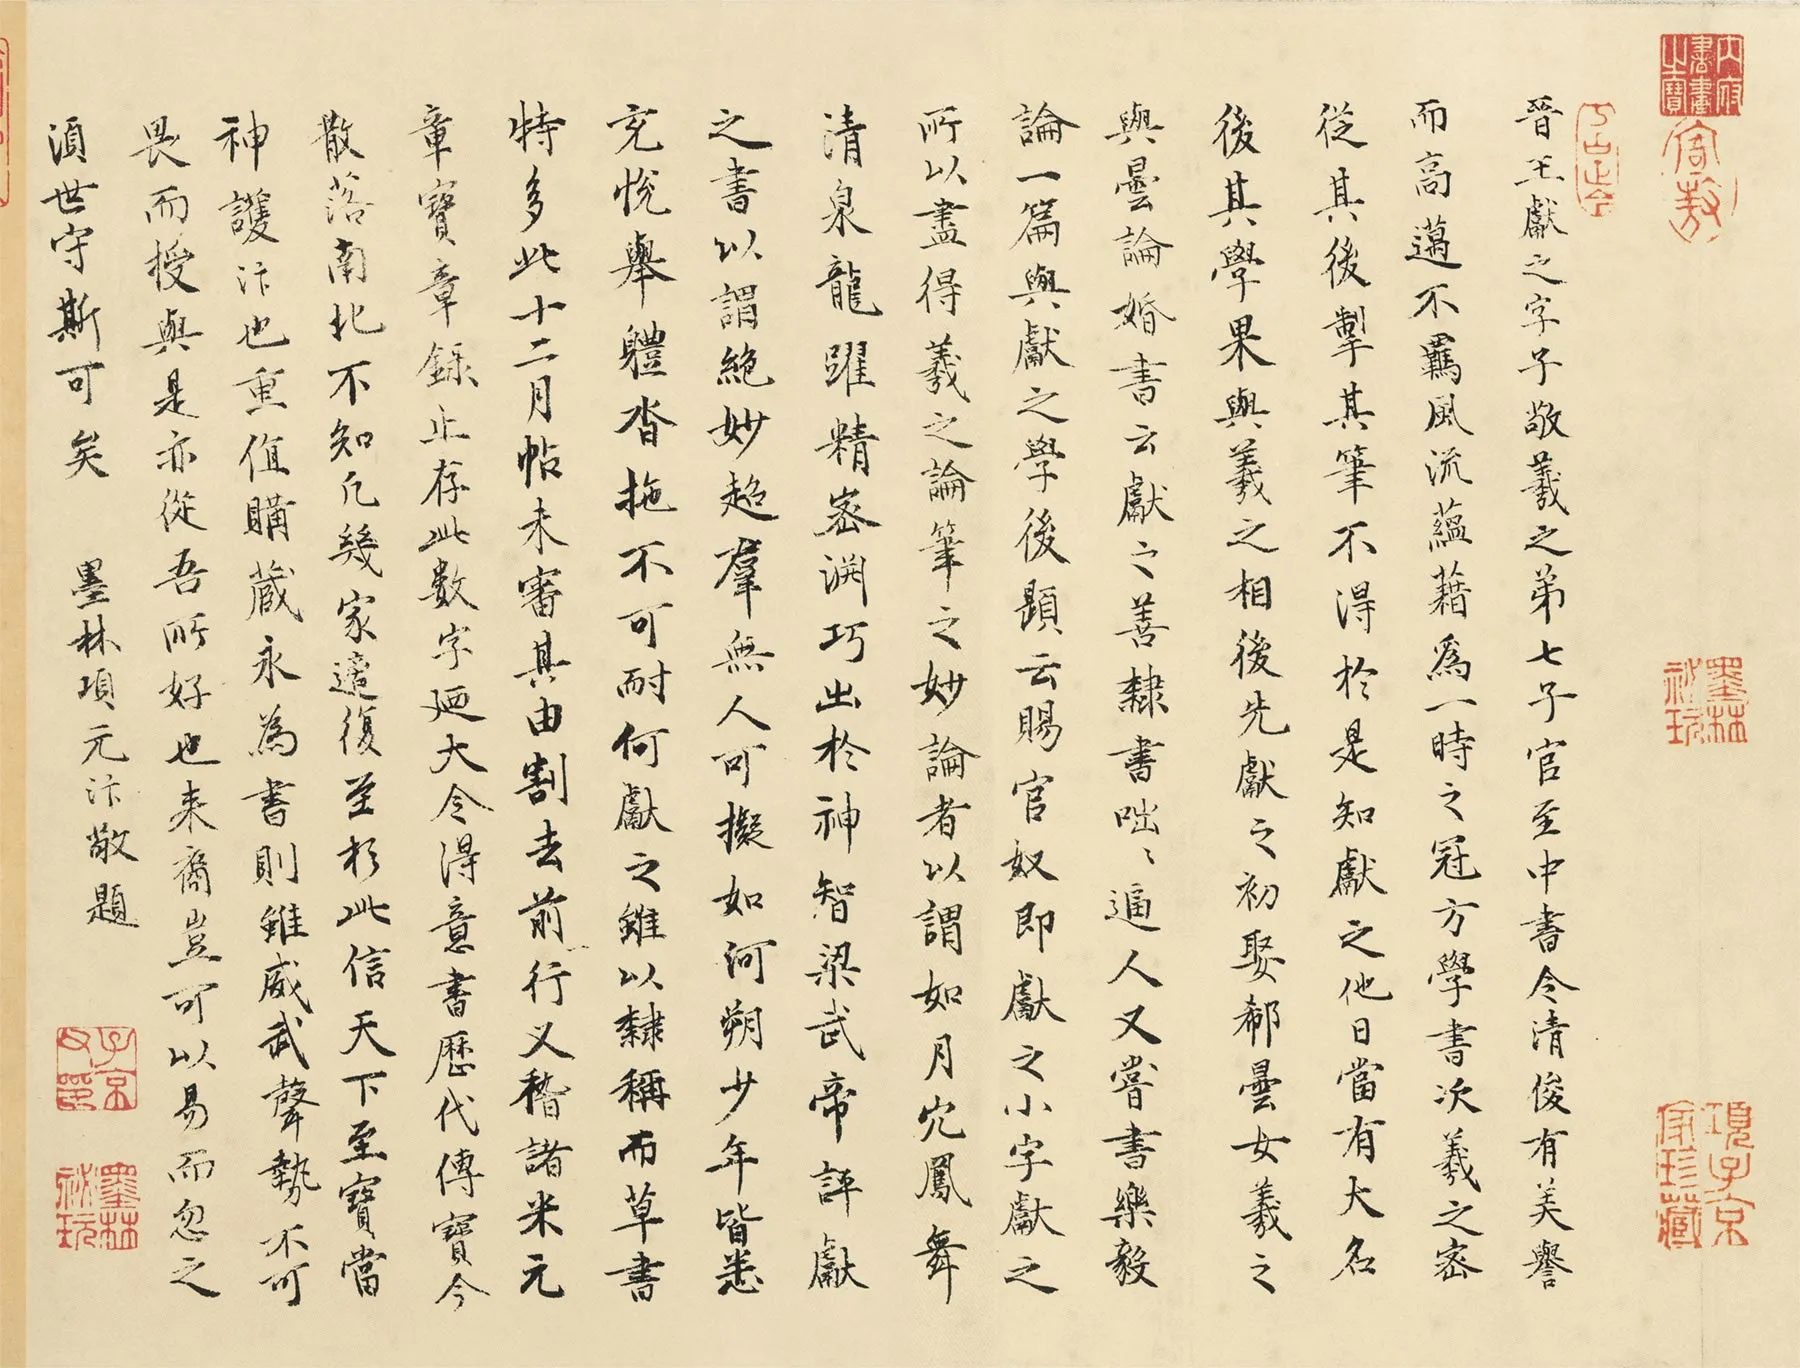 內府書畫之寶
晉王獻之字子敬羲之弟七子官至中書令清俊有美譽
而高邁不羈風流蘊藉為一時之冠方學書次羲之密
從其後掣其筆不得於是知獻之他日當有大名
後其學果與羲之相後先獻之初娶郗曇女羲之
與曇論婚書云獻之善隸書咄〻逼人又嘗書樂毅
論一篇與獻之學後題云賜官奴即獻之小字獻之
所以盡得羲之論筆之妙論者以謂如月穴鳳舞
清泉龍躍精密淵巧出於神智梁武帝評獻
之書以謂絶妙超羣無人可擬如河朔少年皆悉
充悅舉體沓拖不可耐何獻之雖以隸稱而草書
特多此十二月帖未審其由割去前行又稽諸米元
章寶章錄止存此數字廼大令得意書歷代傳寶今
散落南北不知凡幾家適復至於此信天下至寶當
神護汴也重值購藏永為書則雖威武聲勢不可
畏而授與是亦從吾所好也来裔豈可以易而忽之
須世守斯可矣 墨林項元汴敬題
墨林祕玩
項子京家珍藏
子京父印
墨林祕玩